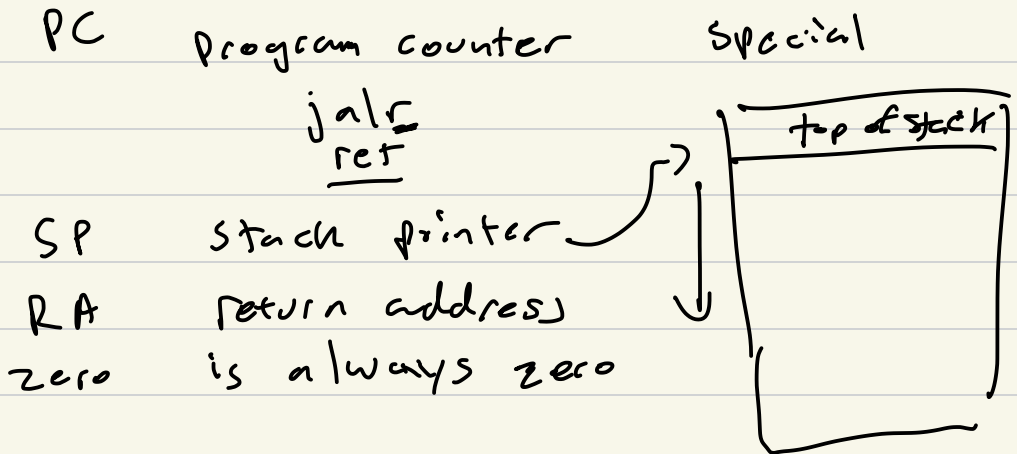 PC program counter special
jalr
ret
top of stack
SP stack printer
RA return address
zero is always zero